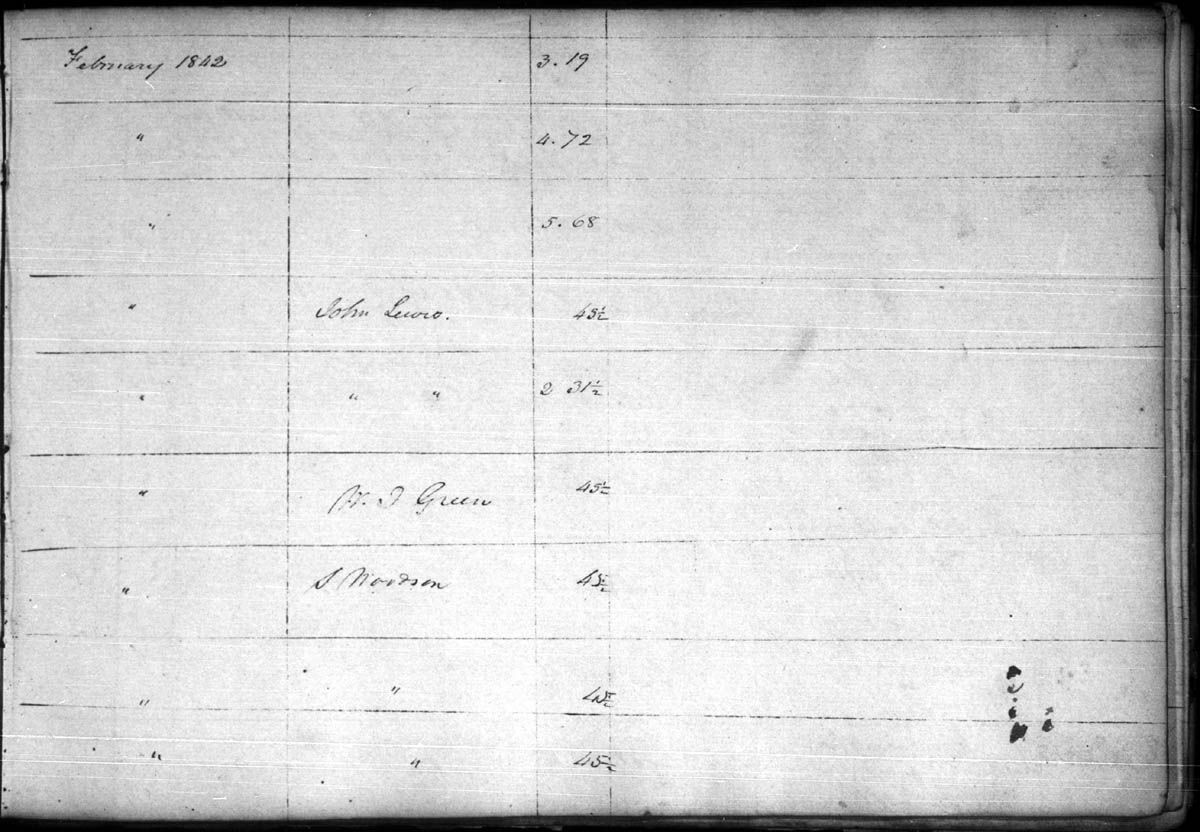 February 1842 3.19
" 4.72
" 5.68
" John Lewis. 45½
" " " 2 31½
" W. I Green 45½
" S Woodson 45½
" " 45½
" " 45½